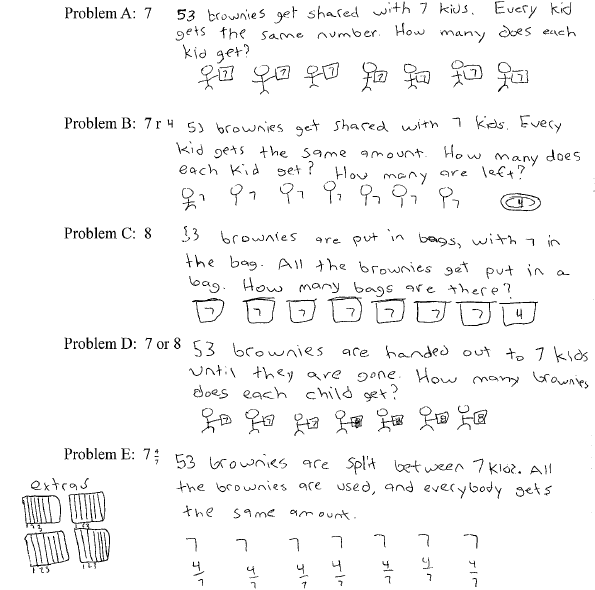 Problem A: 7 53 brownies get shared with 7 kids. Every kid
gets the same number. How many does each
kid get?
7 7 7 7 7 7 7
Problem B: 7 r 4 53 brownies get shared with 7 kids. Every
kid gets the same amount. How many does
each kid get? How many are left?
7 7 7 7 7 7 7 4
Problem C: 8 53 brownies are put in bags, with 7 in
the bag. All the brownies get put in a
bag. How many bags are there?
7 7 7 7 7 7 7 4
Problem D: 7 or 8 53 brownies are handed out to 7 kids
until they are gone. How many brownies
does each child get?
7 7 7 8 8 8 8
Problem E: 7 4/7 53 brownies are split between 7 kids. All
the brownies are used, and everybody gets
the same amount.
extras
7 7 7 7 7 7 7
4/7 4/7 4/7 4/7 4/7 4/7 4/7